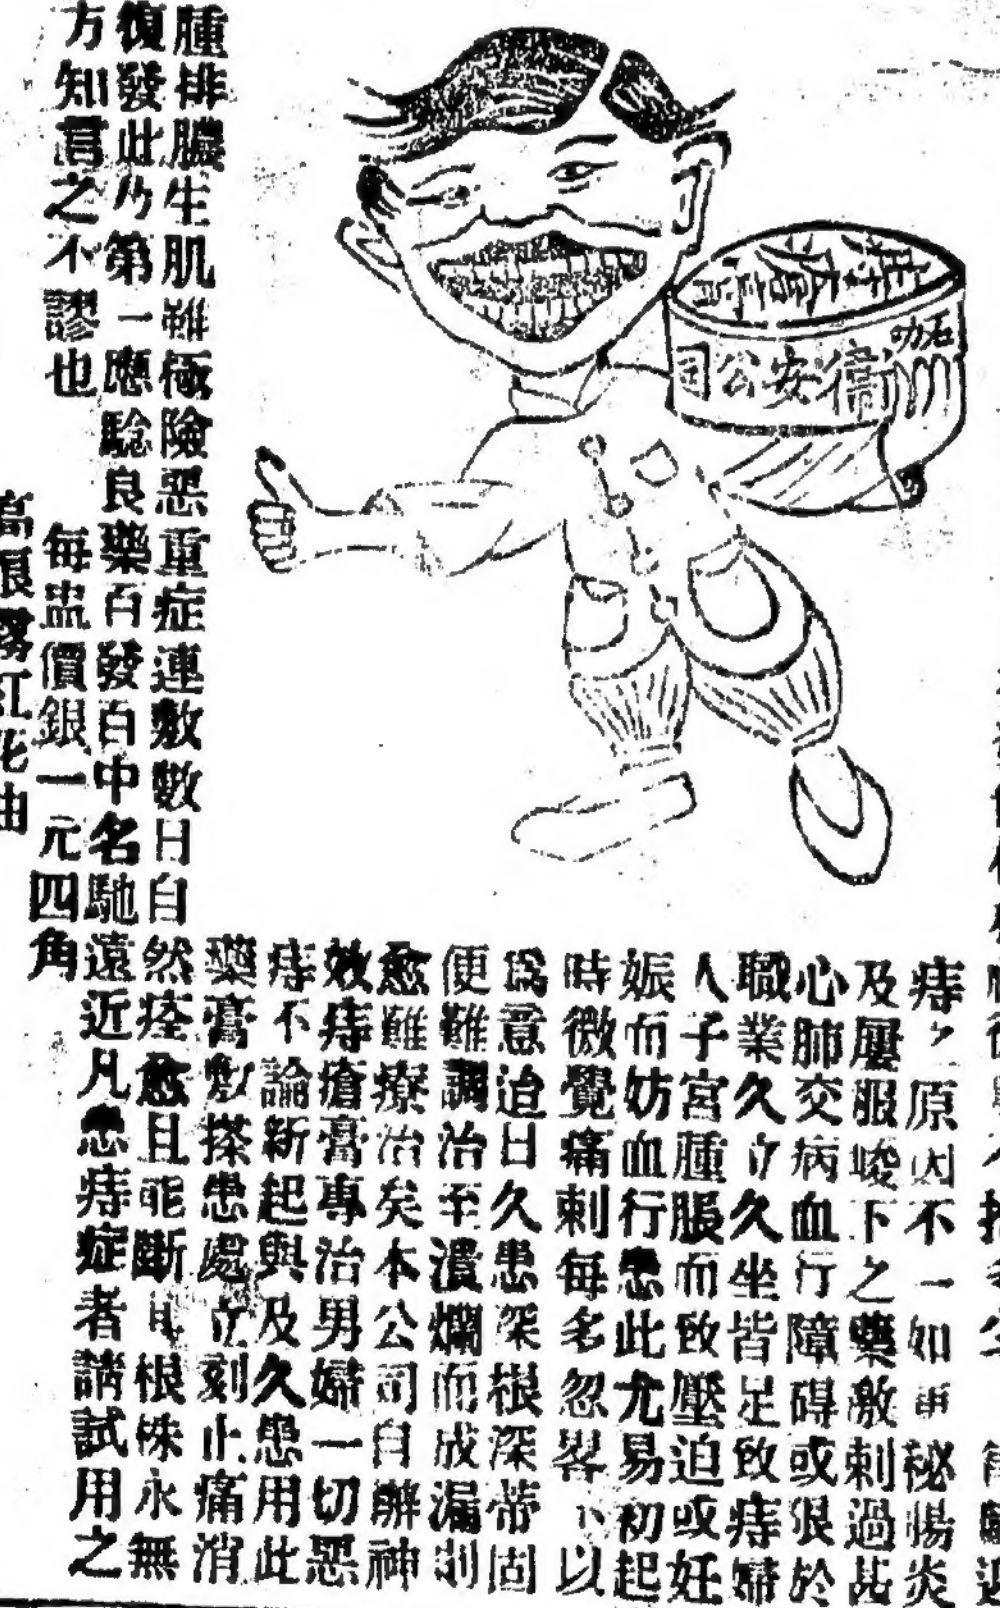 衛安公司
痔之原因不一如便秘腸炎
及屢服峻下之藥激刺過甚
心肺交病血行障碍或限於
職業久立久坐皆足致痔婦
人子宮腫脹而致壓迫或妊
娠而妨血行患此尤易初起
時微覺痛刺每多忽畧不以
爲意迨日久患深根深蒂固
便難調治至潰爛而成漏則
愈難療治矣本公司自辦神
效痔瘡膏專治男婦一切惡
痔不論新起與及久患用此
藥膏敷搽患處立刻止痛消
腫排膿生肌雖極險惡重症連敷數日自然痊愈且能斷其根株永無
復發此乃第一應驗良藥百發百中名馳遠近凡患痔症者請試用之
方知言之不謬也 每盅價銀一元四角
紅花油